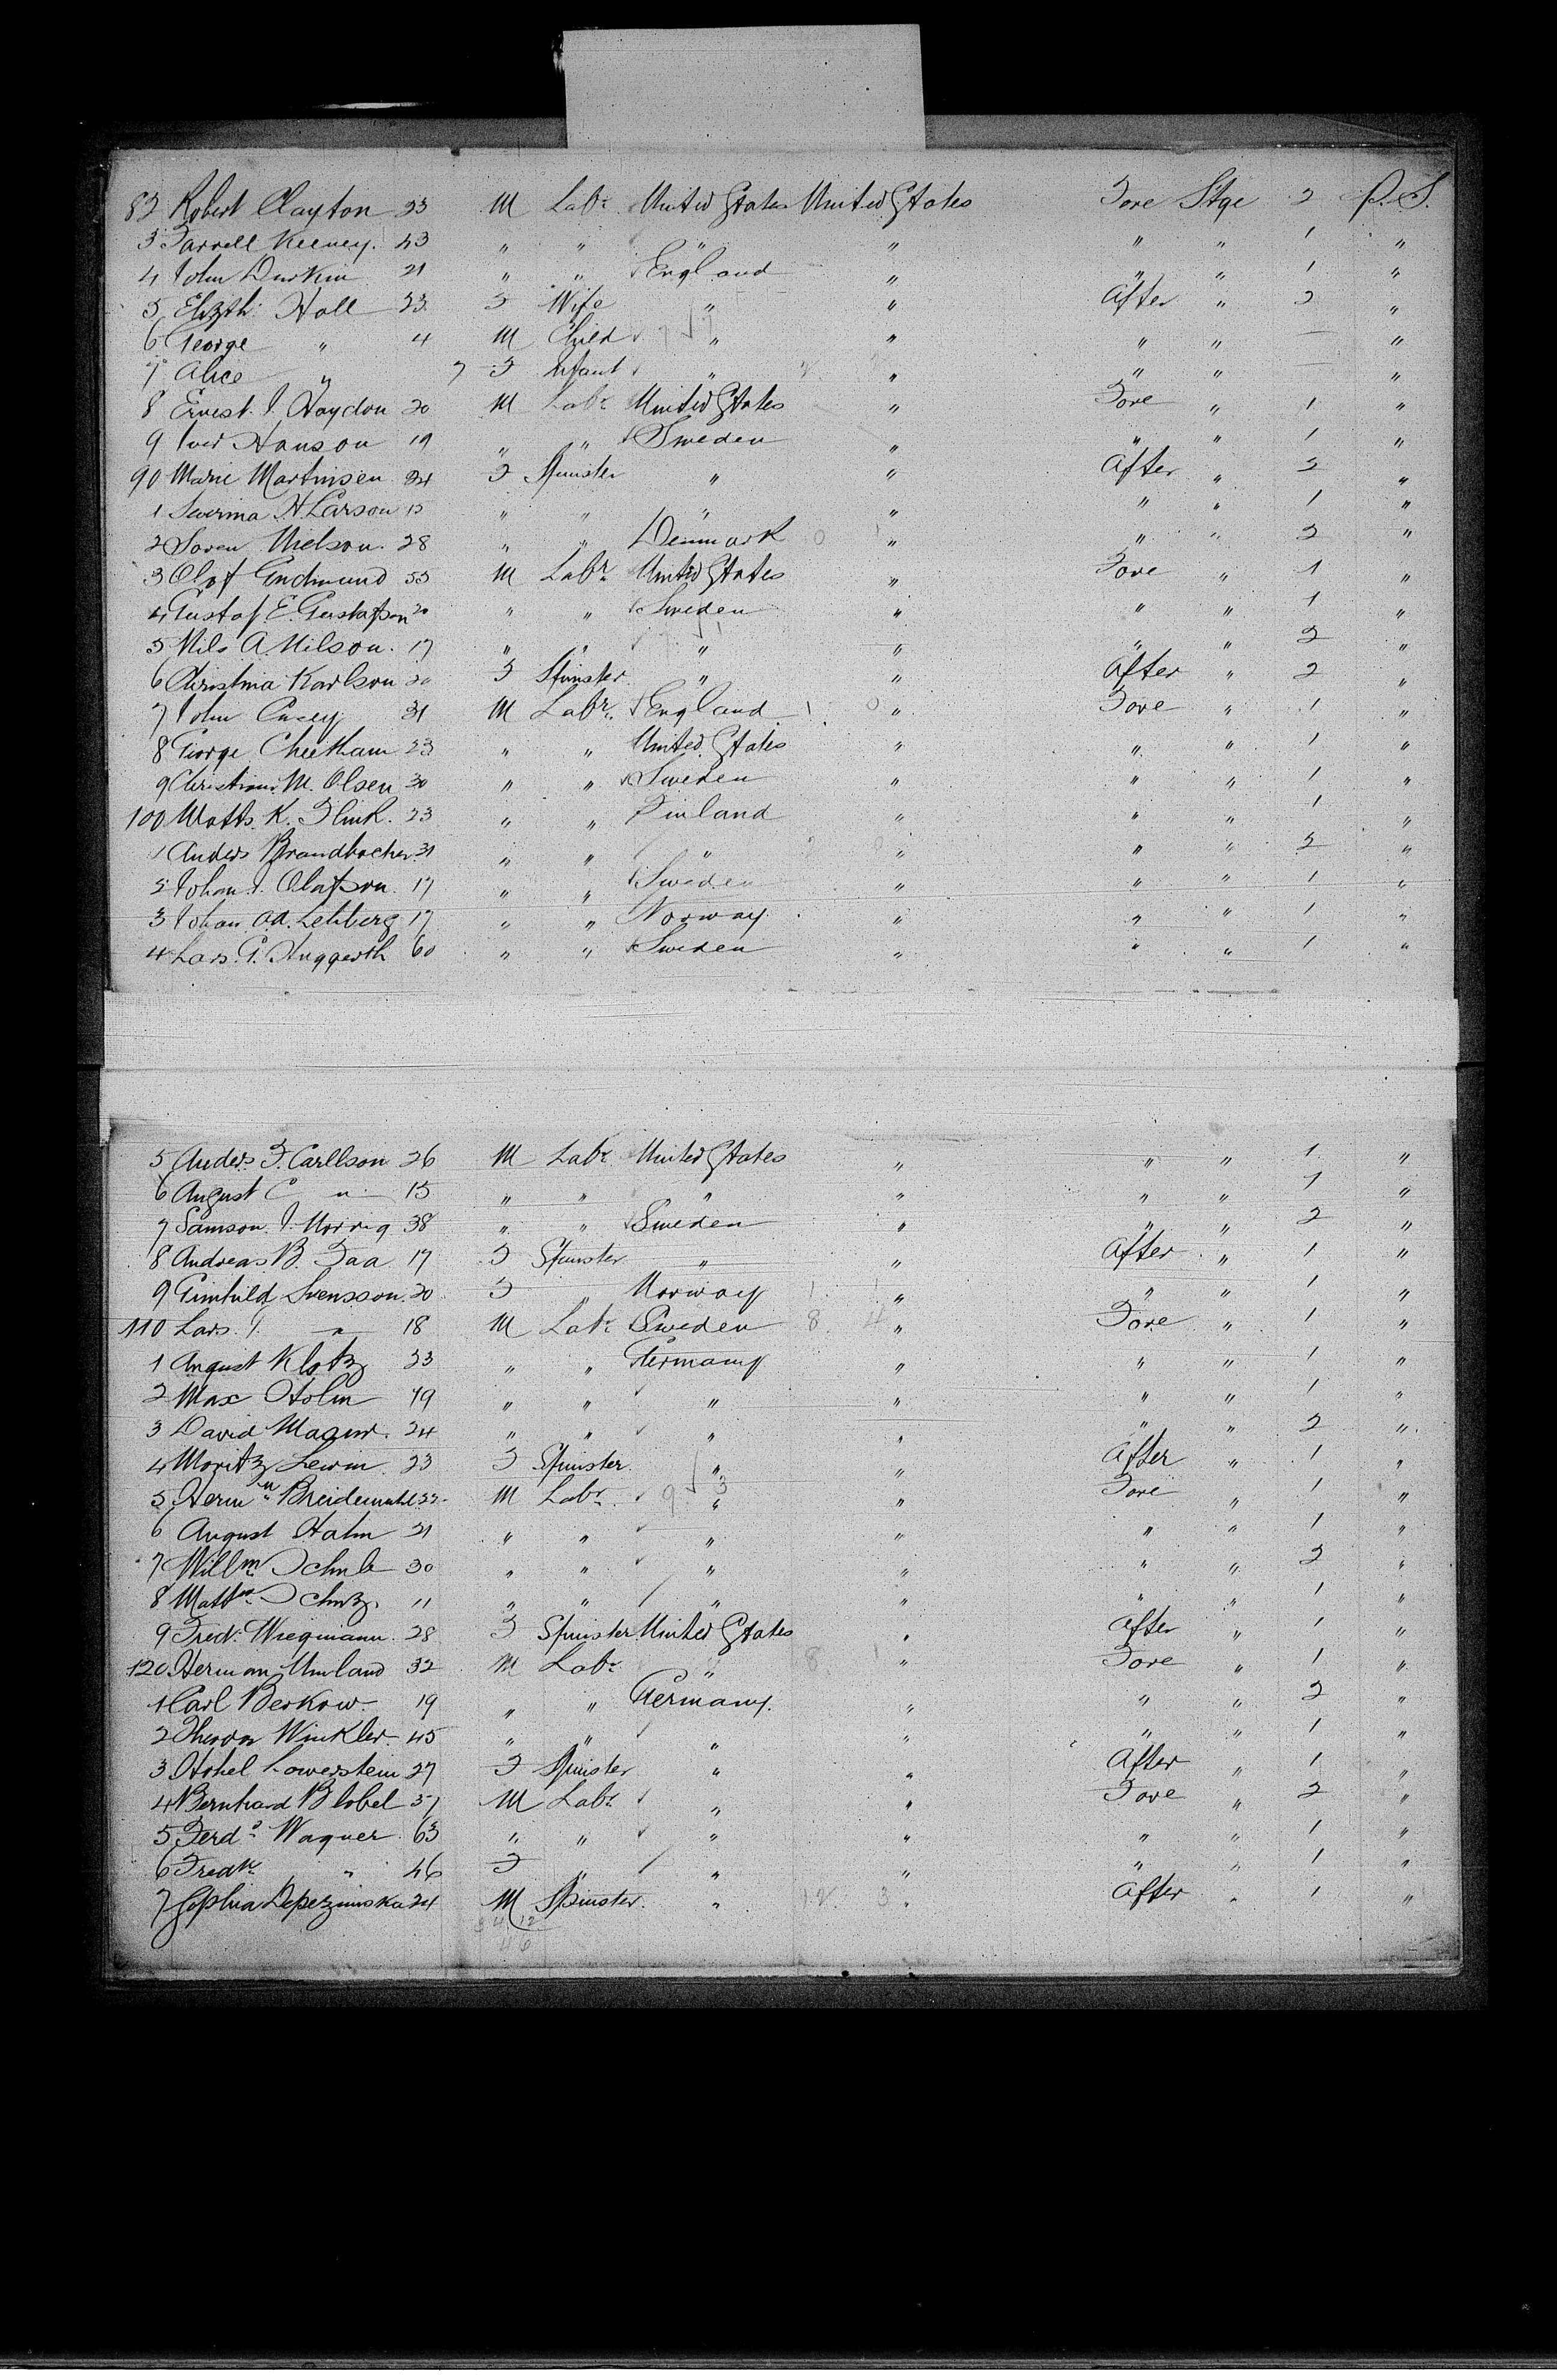 82 Robert Clayton 23 M Labr. United States United States Fore Stge 2 P.S.
3 Farrell Keeney. 43 " " " " " " 1 "
4 John Durkin 21 " " England " " " 1 "
5 Elizth. Hall 23 F Wife " " After " 2 "
6 George " 4 M Child " " " " — "
7 Alice " 7 F Infant " " " " — "
8 Ernest J. Haydon 20 M Labr. United States " Fore " 1 "
9 Iver Hanson 19 " " Sweden " " " 1 "
90 Marie Martinsen 24 F Spinster " " After " 2 "
1 Severina H. Larson " " " " " " 1 "
2 Soren Nielson. 28 " " Denmark " " " 2 "
3 Olof 55 M Labr. United States " Fore " 1 "
4 Gustof E. Gustafson 20 " " Sweden " " " 1 "
5 Nils A. Nilson. 17 " " " " " " 2 "
6 Christina Karlson 20 F Spinster " " After " 2 "
7 John Casey 31 M Labr. England " Fore " 1 "
8 George Cheetham 23 " " United States " " " 1 "
9 M. Olsen 30 " " Sweden " " " 1 "
100 Matts. K. Flink. 23 " " Finland " " " 1 "
1 Anders 31 " " " " " " 2 "
2 Johan J. Olafson. 17 " " Sweden " " " 1 "
3 Johan Ad. 17 " " Norway " " " 1 "
4 Lars. G. 60 " " Sweden " " " 1 "
5 Anders F. Carllson 26 M Labr. United States " " " 1 "
6 August C " 15 " " " " " " 1 "
7 Samson. J. 38 " " Sweden " " " 2 "
8 Andreas B. Faa 17 F Spinster " " After " 1 "
9 Svensson. 20 F " Norway " " " 1 "
110 Lars. J. " 18 M Labr. Sweden " Fore " 1 "
1 August Klotz 23 " " Germany " " " 1 "
2 Max Holm 19 " " " " " " 1 "
3 David 24 " " " " " " 2 "
4 Moritz Lewin 23 F Spinster " " After " 1 "
5 Hermn. M Labr. " " Fore " 1 "
6 August Hahn 21 " " " " " " 1 "
7 Willm. 30 " " " " " " 2 "
8 11 " " " " " " 1 "
9 Fred. Wiegmann. 28 F Spinster United States " After " 1 "
120 Herman Umland 32 M Labr. " " Fore " 1 "
1 Carl Berkow. 19 " " Germany. " " " 2 "
2 Theodor Winkler. 45 " " " " " " 1 "
3 Lowerstein 27 F Spinster " " After " 1 "
4 Bernhard Blobel 57 M Labr. " " Fore " 2 "
5 Ferd. Wagner 63 " " " " " " 1 "
6 Fredk. " 46 F " " " " " 1 "
7 Sophia 24 M Spinster. " " After " 1 "
34 12
46